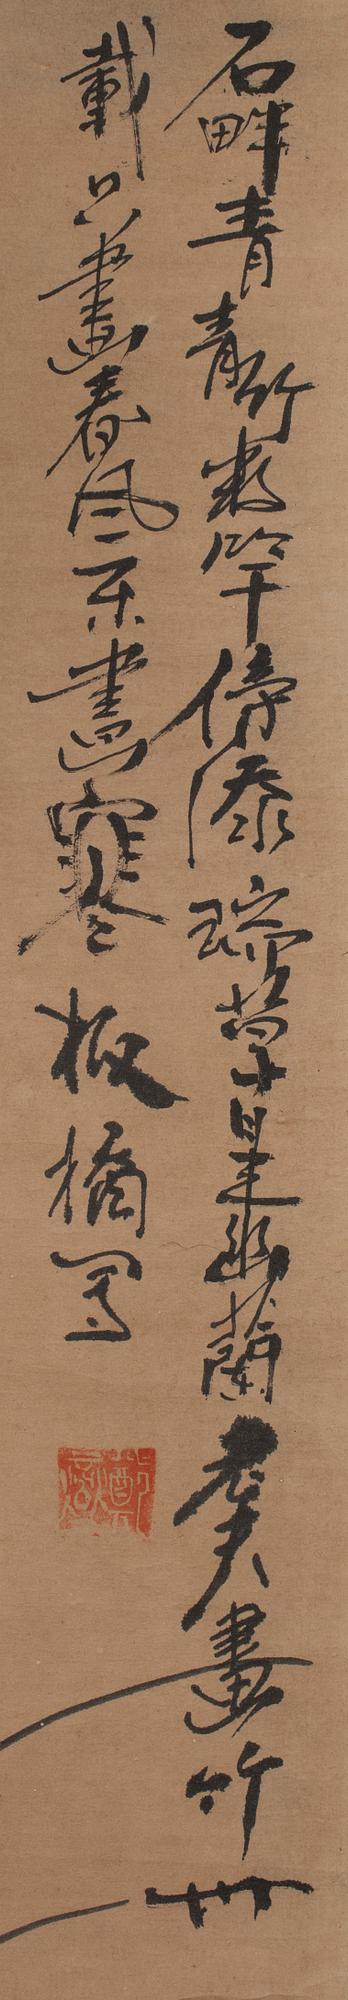 石畔青青竹數竿傍添瑞草是幽蘭老夫畫竹卅
載只畫春風不畫寒板橋寫
鄭燮